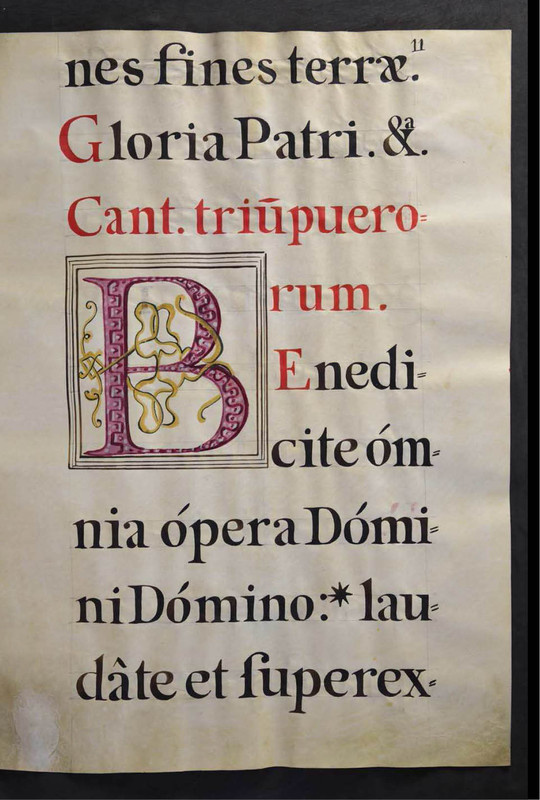 11
nes fines terræ.
Gloria Patri. &ª.
Cant. triūpuero=
rum.
B Enedi=
cite óm=
nia ópera Dómi=
ni Dómino:* lau=
dâte et ſuperex=